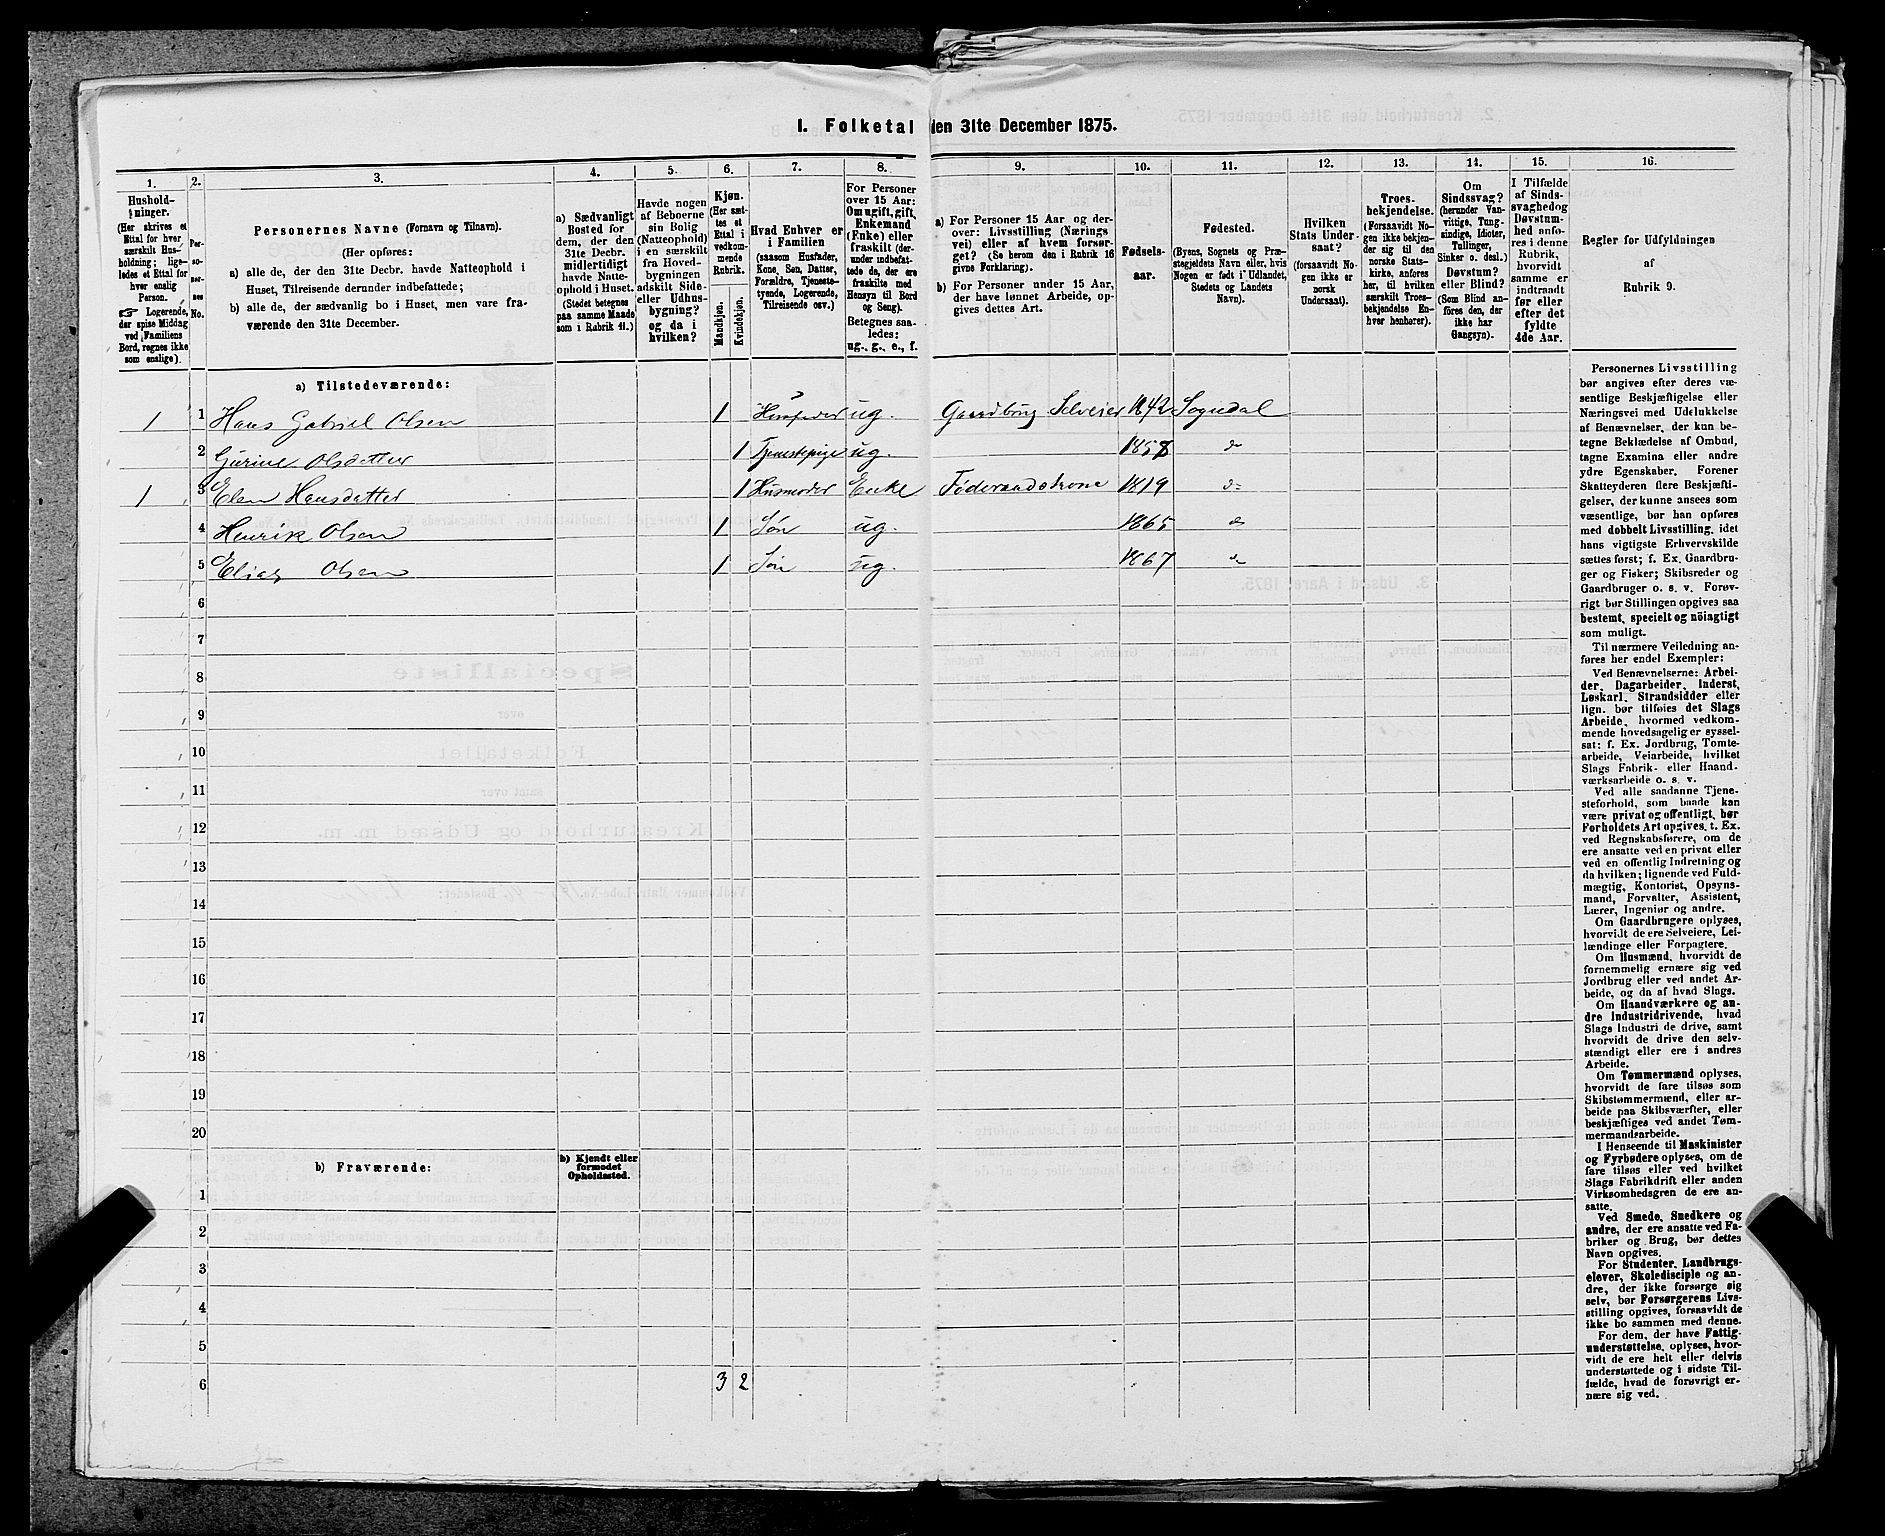 I. Folketal den 31te December 1875.
1. 2. 3. 4. 5. 6. 7. 8. 9. 10. 11. 12. 13. 14. 15. 16.
Hushold-
ninger.
(Her skrives et
Ettal for hver
særskilt Hus-
holdning; lige-
ledes et Ettal for
hver enslig
Person.
☞ Logerende,
der spise Middag
ved Familiens
Bord, regnes ikke
som enslige).
Per-
so-
ner-
nes
No.
Personernes Navne (Fornavn og Tilnavn).
(Her opføres:
a) alle de, der den 31te Decbr. havde Natteophold i
Huset, Tilreisende derunder indbefattede;
b) alle de, der sædvanlig bo i Huset, men vare fra-
værende den 31te December.
a) Sædvanligt
Bosted for
dem, der den
31te Decbr.
midlertidigt
havde Natte-
ophold i Huset.
(Stedet betegnes
paa samme Maade
som i Rubrik 11.)
Havde nogen
af Beboerne
sin Bolig
(Natteophold)
i en særskilt
fra Hoved-
bygningen
adskilt Side-
eller Udhus-
bygning?
og da i
hvilken?
Kjøn.
(Her sæt-
tes et
Ettal i
vedkom-
mende
Rubrik.
Mandkjøn.
Kvindekjøn.
Hvad Enhver er
i Familien
(saasom Husfader,
Kone, Søn, Datter,
Forældre, Tjeneste-
tyende, Logerende,
Tilreisende osv.)
For Personer
over 15 Aar:
Om ugift, gift,
Enkemand
(Enke) eller
fraskilt (der-
under indbefat-
tede de, der ere
fraskilte med
Hensyn til Bord
og Seng).
Betegnes saa-
ledes:
ug., g., e., f.
a) For Personer 15 Aar og der-
over: Livsstilling (Nærings
vei) eller af hvem forsør-
get? (Se herom den i Rubrik 16
givne Forklaring).
b) For Personer under 15 Aar,
der have lønnet Arbeide, op-
gives dettes Art.
Fødsels-
aar.
Fødested.
(Byens, Sognets og Præ-
stegjeldets Navn eller, hvis
Nogen er født i Udlandet,
Stedets og Landets
Navn).
Hvilken
Stats Under-
saat?
(forsaavidt No-
gen ikke er
norsk
Undersaat).
Troes-
bekjendelse.
(Forsaavidt No-
gen ikke bekjen-
der sig til den
norske Stats-
kirke, anføres
her, til hvilken
særskilt Troes-
bekjendelse En-
hver henhører).
Om
Sindssvag?
(herunder Van-
vittige, Tung-
sindige, Idioter,
Tullinger,
Sinker o. desl.)
Døvstum?
eller Blind?
(Som Blind an-
føres den, der
ikke har
Gangsyn).
I Tilfælde
af Sinds-
svaghed og
Døvstum-
hed anfø-
res i denne
Rubrik,
hvorvidt
samme er
indtraadt
før eller
efter det
fyldte
4de Aar.
Regler for Udfyldningen
af
Rubrik 9.
a) Tilstedeværende:
1 1 Hans Gabriel Olsen 1 Husfader ug. Gaardbrug Selveier 1842 Sogndal
2 Gurine Olsdatter 1 Tjenestepige ug. 1858 do
1 3 Elen Hansdatter 1 Husmoder Enke Føderaadskone 1819 do
4 Henrik Olsen 1 Søn ug. 1865 do
5 Elias Olsen 1 Søn ug. 1867 do
6
7
8
9
10
11
12
13
14
15
16
17
18
19
20
b) Fraværende:
b) Kjendt eller
formodet
Opholdssted.
1
2
3
4
5
6 3 2
Personernes Livsstilling
bør angives efter deres væ-
sentlige Beskjæftigelse eller
Næringsvei med Udelukkelse
af Benævnelser, der kun be-
tegne Beklædelse af Ombud,
tagne Examina eller andre
ydre Egenskaber. Forener
Skatteyderen flere Beskjæfti-
gelser, der kunne ansees som
væsentlige, bør han opføres
med dobbelt Livsstilling, idet
hans vigtigste Erhvervskilde
sættes først; f. Ex. Gaardbru-
ger og Fisker; Skibsreder og
Gaardbruger o. s. v. Forøv-
rigt bør Stillingen opgives saa
bestemt, specielt og nöiagtigt
som muligt.
Til nærmere Veiledning an-
føres her endel Exempler:
Ved Benævnelserne: Arbei-
der, Dagarbeider, Inderst,
Løskarl, Strandsidder eller
lign. bør tilføies det Slags
Arbeide, hvormed vedkom-
mende hovedsagelig er syssel-
sat: f. Ex. Jordbrug, Tomte-
arbeide, Veiarbeide, hvilket
Slags Fabrik- eller Haand-
værksarbeide o. s. v.
Ved alle saadanne Tjene-
steforhold, som baade kan
være privat og offentligt, bør
Forholdets Art opgives, t. Ex.
ved Regnskabsførere, om de
ere ansatte ved en privat eller
ved en offentlig Indretning og
da hvilken; lignende ved Fuld-
mægtig, Kontorist, Opsyns-
mand, Forvalter, Assistent,
Lærer, Ingeniør og andre.
Om Gaardbrugere oplyses,
hvorvidt de ere Selveiere, Lei-
lændinge eller Forpagtere.
Om Husmænd, hvorvidt de
fornemmelig ernære sig ved
Jordbrug eller ved andet Ar-
beide, og da af hvad Slags.
Om Haandværkere og an-
dre Industridrivende, hvad
Slags Industri de drive, samt
hvorvidt de drive den selv-
stændigt eller ere i andres
Arbeide.
Om Tømmermænd oplyses,
hvorvidt de fare tilsøs som
Skibstømmermænd, eller ar-
beide paa Skibsværfter, eller
beskjæftiges ved andet Tøm-
mermandsarbeide.
I Henseende til Maskinister
og Fyrbødere oplyses, om de
fare tilsøs eller ved hvilket
Slags Fabrikdrift eller anden
Virksomhedsgren de ere an-
satte.
Ved Smede, Snedkere og
andre, der ere ansatte ved Fa-
briker og Brug, bør dettes
Navn opgives.
For Studenter, Landbrugs-
elever, Skoledisciple og an-
dre, der ikke forsørge sig
selv, bør Forsørgerens Livs-
stilling opgives, forsaavidt de
ikke bo sammen med denne.
For dem, der have Fattig-
understøttelse, oplyses, hvor-
vidt de ere helt eller delvis
understøttede og i sidste Til-
fælde, hvad de forøvrigt er-
nære sig ved.